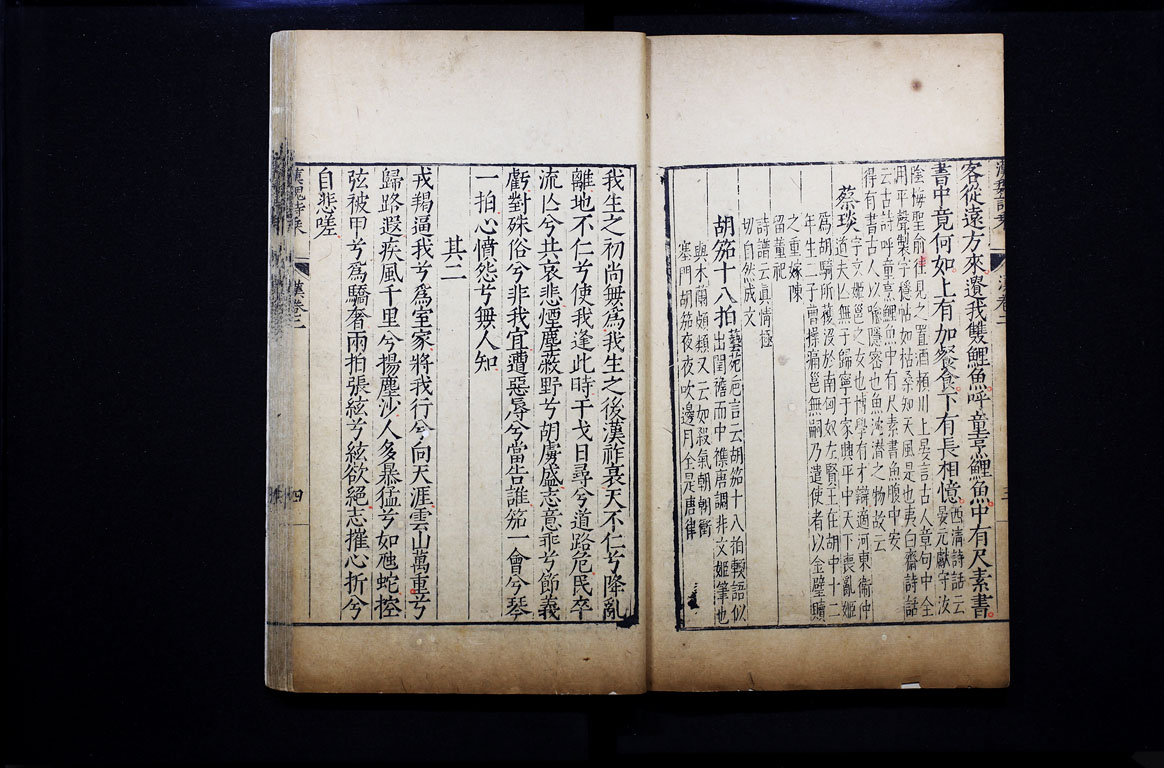 客從遠方來遺我雙鯉魚呼童烹鯉魚中有尺素書
書中竟何如上有加餐食下有長相憶西清詩話云
晏元獻守汝
陰梅聖俞往見之置酒潁川上晏言古人章句中全
用平聲製字穩帖如枯桑知天風是也夷白齋詩話
云古詩呼童烹鯉魚中有尺素書魚腹中安
得有書古人以喻隱密也魚沈潛之物故云
蔡琰字文姬邕之女也博學有才辯適河東衛仲
道夫亾無子歸寧于家興平中天下喪亂姬
爲胡騎所獲沒於南匈奴左賢王在胡中十二
年生二子曹操痛邕無嗣乃遣使者以金璧贖
之重嫁陳
留董祀
詩譜云眞情極
切自然成文
胡笳十八拍藝苑卮言云胡笳十八拍輭語似
出閨襜而中襍唐調非文姬筆也
與木蘭頗類又云如殺氣朝朝衝
塞門胡笳夜夜吹邊月全是唐律
我生之初尚無爲我生之後漢祚衰天不仁兮降亂
離地不仁兮使我逢此時干戈日尋兮道路危民卒
流亾兮共哀悲煙塵蔽野兮胡虜盛志意乖兮節義
虧對殊俗兮非我宜遭惡辱兮當告誰笳一會兮琴
一拍心憤怨兮無人知
其二
戎羯逼我兮爲室家將我行兮向天涯雲山萬重兮
歸路遐疾風千里兮揚塵沙人多暴猛兮如虺蛇控
弦被甲兮爲驕奢兩拍張絃兮絃欲絕志摧心折兮
自悲嗟
漢魏詩乘 漢卷三 四